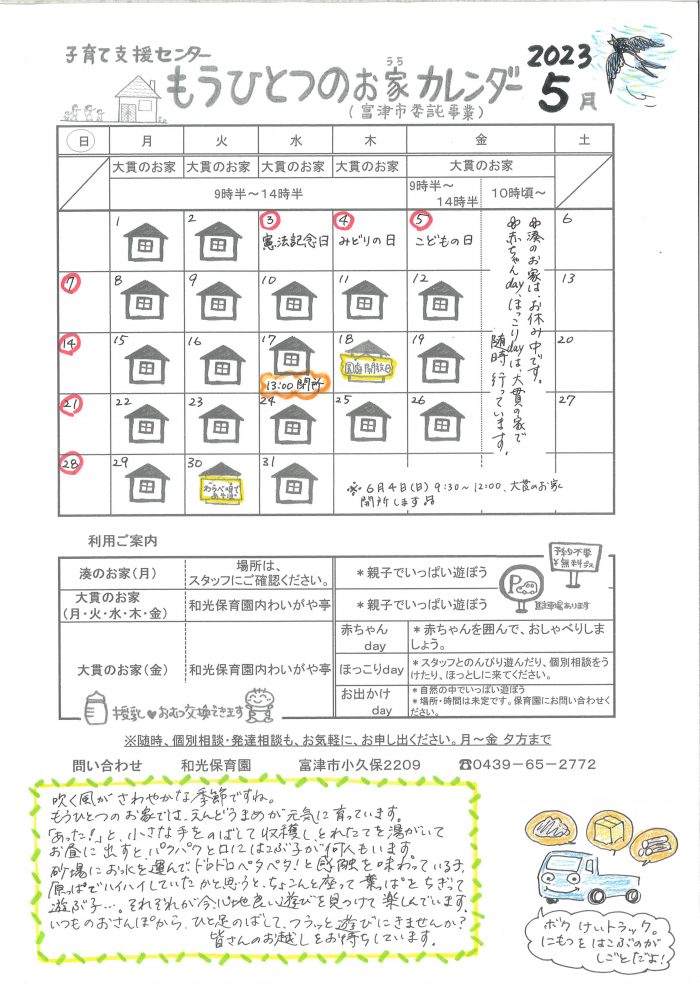 子育て支援センター
もうひとつのお家カレンダー
うち
(富津市委託事業)
2023
5月
日 月 火 水 木 金 土
大貫のお家 大貫のお家 大貫のお家 大貫のお家 大貫のお家
9時半～14時半 9時半～14時半 10時頃～
1 2 ③ ④ ⑤ 6
憲法記念日 みどりの日 こどもの日
⑦ 8 9 10 11 12 13
⑭ 15 16 17 18 19 20
13:00閉所 園庭開放日
㉑ 22 23 24 25 26 27
㉘ 29 30 31
わらべ唄であそぼ
湊のお家は、お休み中です。
赤ちゃんday、ほっこりdayは、大貫の家で
随時、行っています。
※6月4日(日) 9:30～12:00、大貫のお家
開所します
利用ご案内
湊のお家(月) 場所は、
スタッフにご確認ください。 *親子でいっぱい遊ぼう
大貫のお家
(月・火・水・木・金) 和光保育園内わいがや亭 *親子でいっぱい遊ぼう
予約不要
¥無料
P
駐車場あります
大貫のお家(金) 和光保育園内わいがや亭
赤ちゃん
day
*赤ちゃんを囲んで、おしゃべりしま
しょう。
ほっこりday
*スタッフとのんびり遊んだり、個別相談をう
けたり、ほっとしに来てください。
お出かけ
day
*自然の中でいっぱい遊ぼう
*場所・時間は未定です。保育園にお問い合わせく
ださい。
授乳♥おむつ交換できます
※随時、個別相談・発達相談も、お気軽に、お申し出ください。月～金 夕方まで
問い合わせ 和光保育園 富津市小久保2209 ☎0439-65-2772
吹く風がさわやかな季節ですね。
もうひとつのお家では、えんどうまめが元気に育っています。
「あった!」と、小さな手をのばして収穫し、とれたてを湯がいて
お昼に出すと、パクパクと口にはこぶ子が何人もいます。
砂場にお水を運んで、ドロドロペタペタ!と感触を味わっている子、
原っぱでハイハイしていたかと思うと、ちょこんと座って葉っぱをちぎって
遊ぶ子…。それぞれが今、心地良い遊びを見つけて楽しんでいます。
いつものおさんぽから、ひと足のばして、フラッと遊びにきませんか?
皆さんのお越しをお待ちしています。
ボク けいトラック。
にもつをはこぶのが
しごとだよ!